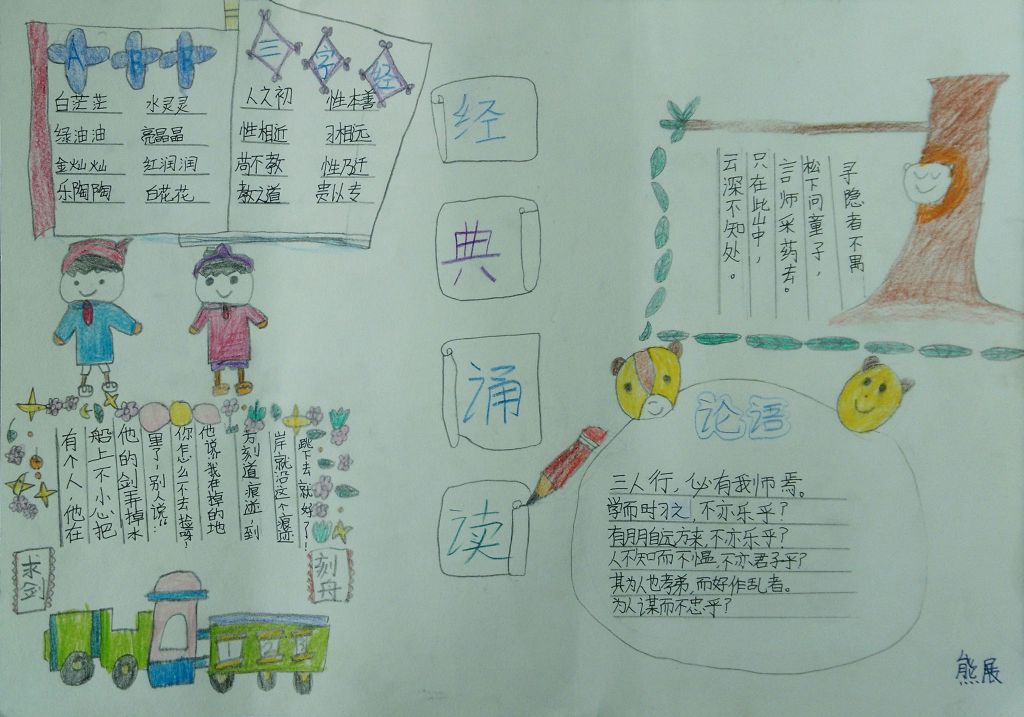 A B B
白茫茫 水灵灵
绿油油 亮晶晶
金灿灿 红润润
乐陶陶 白花花
三字经
人之初 性本善
性相近 习相远
苟不教 性乃迁
教之道 贵以专
经
典
诵
读
寻隐者不禺
松下问童子，
言师采药去。
只在此山中，
云深不知处。
有个人，他在
船上不小心把
他的剑弄掉水
里了，别人说：“
你怎么不去捡呀？
他说，我在掉的地
方刻道痕迹，到
岸就沿这个痕迹
跳下去就好了！
刻舟
求剑
1 2 3
论语
三人行，必有我师焉。
学而时习之，不亦乐乎？
有朋自远方来，不亦乐乎？
人不知而不愠，不亦君子乎？
其为人也孝弟，而好作乱者。
为人谋而不忠乎？
熊展